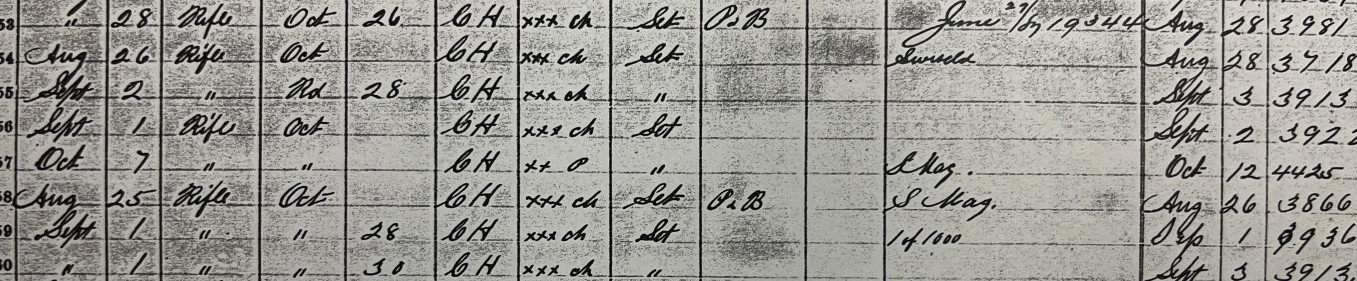 53 " 28 Rifle Oct 26 C H xxx ch Set P.B June 27/07 19344 Aug 28 3981
54 Aug 26 Rifle Oct C H xxx ch Set Aug 28 3718
55 Sept 2 " Rd 28 C H xxx ch " Sept 3 3913
56 Sept 1 Rifle Oct C H xxx ch Set Sept 2 3922
57 Oct 7 " " C H xx P " S Mag. Oct 12 4425
58 Aug 25 Rifle Oct C H xxx ch Set P.B S Mag. Aug 26 3866
59 Sept 1 " " 28 C H xxx ch Set 1 of 1000 Sep 1 3936
60 " 1 " " 30 C H xxx ch " Sept 3 3913